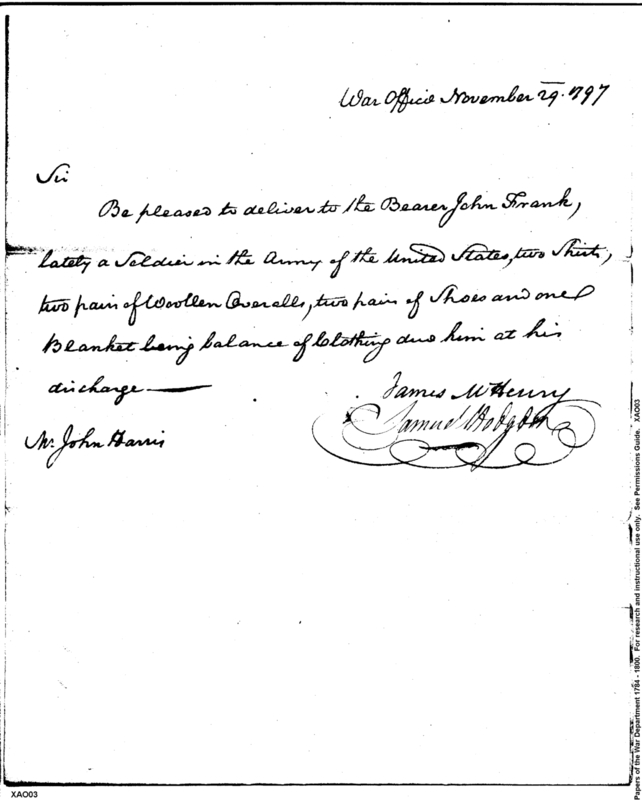 War Office November 29. 1797
Sir
Be pleased to deliver to the Bearer John Frank,
lately a Soldier in the Army of the United States, two Shirts,
two pair of Woollen Overalls, two pair of Shoes and one
Blanket being balance of Clothing due him at his
discharge —
James McHenry
Samuel Hodgdon
Mr. John Harris
Papers of the War Department 1784 - 1800. For research and instructional use only. See Permissions Guide. XAO03
XAO03